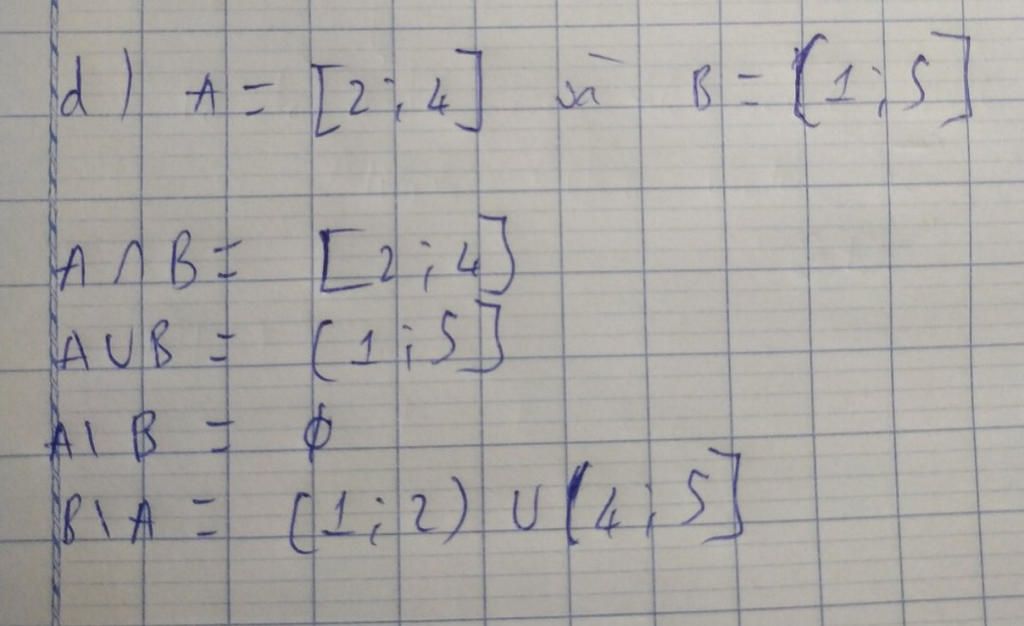 d) A = [2; 4] và B = (1; 5]
A ∩ B = [2; 4]
A ∪ B = (1; 5]
A \ B = ∅
B \ A = (1; 2) ∪ (4; 5]